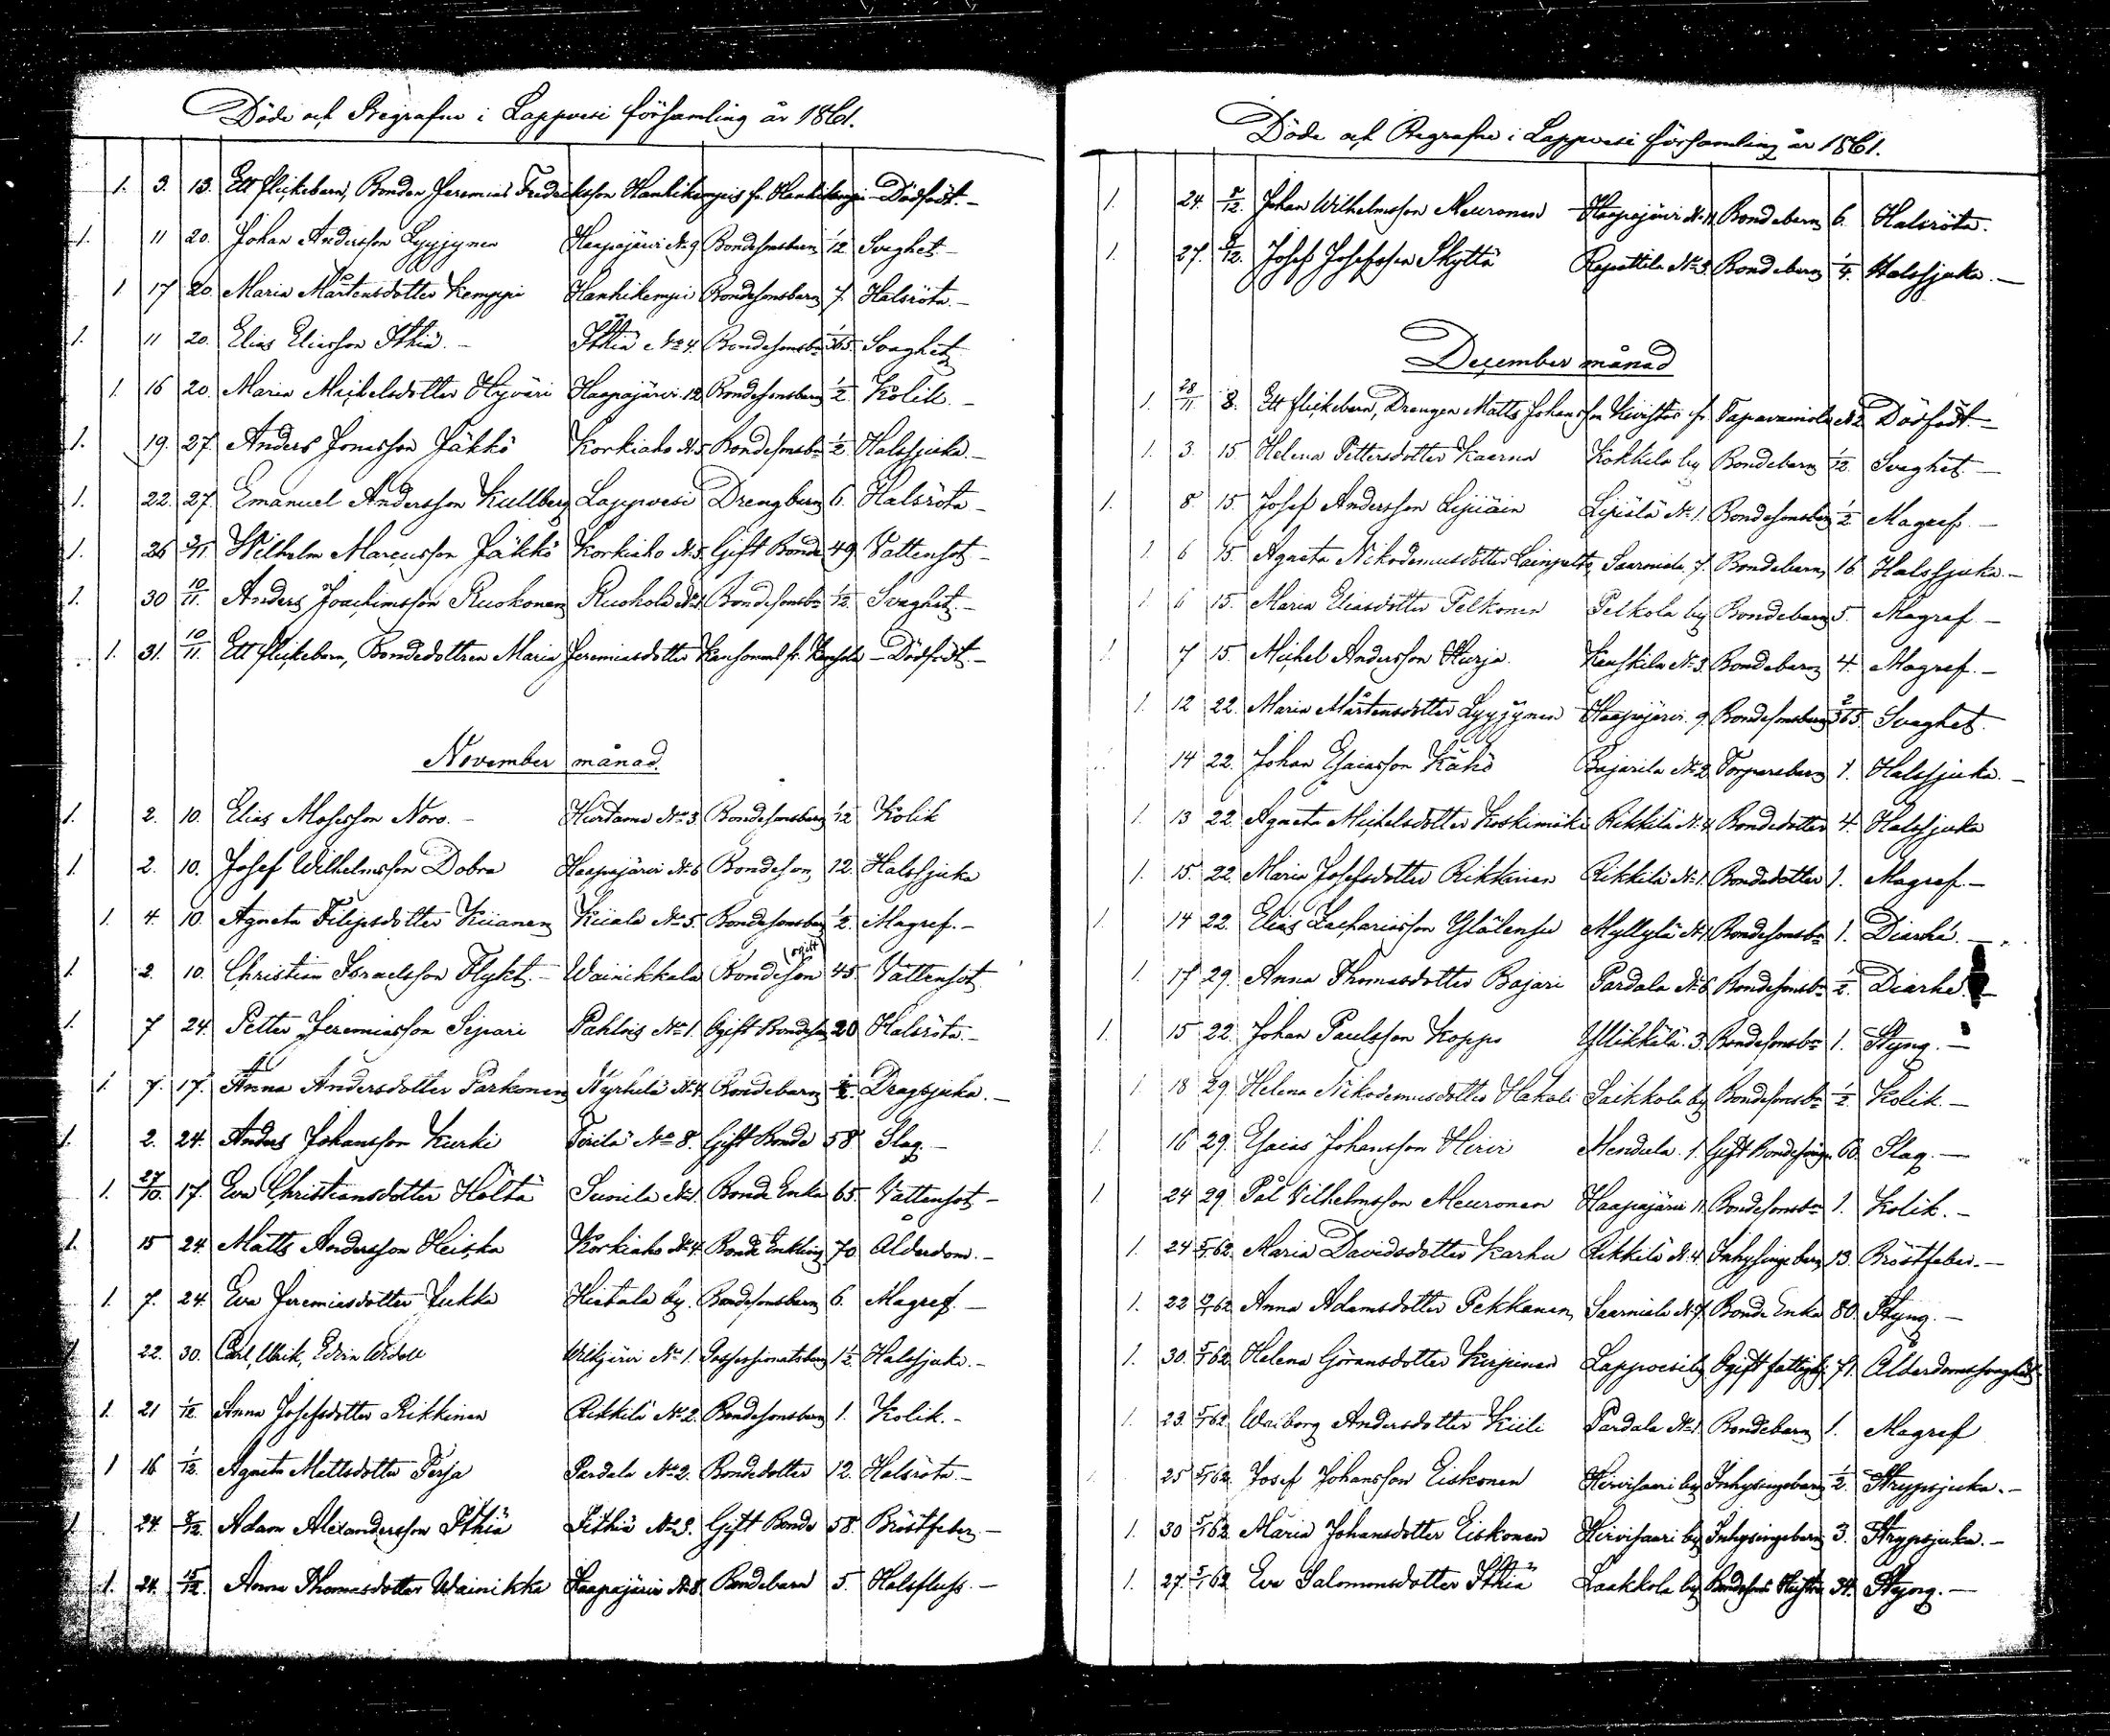 Döde och Begrafne i Lappvesi församling år 1861.
1. 3. 13. Ett flickebarn, Bonden Jeremias Fredriksson Hanhikempis fr. Hanhikempi - Dödfödt. -
1. 11 20. Johan Andersson Lyyjynen Haapajärvi No 9 Bondesonsbarn 1/12 Svaghet. -
1 17 20. Maria Mårtensdotter Kemppi Hanhikempi Bondesonsbarn 7. Halsröta. -
1. 11 20. Elias Eliasson Ithiä. - Ithiä No 4. Bondesonsbn 1/365. Svaghet
1. 16 20. Maria Michelsdotter Hyväri Haapajärvi 12 Bondesonsbarn 1/2 Kolik. -
1. 19. 27. Anders Jonasson Jäkkö Korkiaho No 5 Bondesonsbn 1/2. Halssjuka. -
1. 22. 27. Emanuel Andersson Kullberg Lappvesi Drengbarn 6. Halsröta -
1. 26 3/11. Wilhelm Marcusson Jäkkö Korkiaho No 5. Gift Bonde 49 Vattensot -
1. 30 10/11. Anders Joachimsson Ruokonen Ruohola No 1 Bondesonsbn 1/12. Svaghet. -
1. 31. 10/11. Ett flickebarn, Bondedottren Maria Jeremiasdotter Kansonens fr. Kansola - Dödfödt. -
November månad.
1. 2. 10. Elias Mosesson Noro. - Hurtama No 3 Bondesonsbarn 1/12 Kolik
1. 2. 10. Josef Wilhelmsson Dobra Haapajärvi No 6 Bondeson 12. Halssjuka
1. 4. 10. Agneta Filipsdotter Kiianen Kiiala No 5. Bondesonsbarn 1/2. Magref. -
1. 2. 10. Christian Israelsson Flykt. - Wainikkala Bondeson (ogift 45. Vattensot
1. 7 24. Petter Jeremiasson Sipari Pahlois No 1. Ogift Bondeson 20 Halsröta. -
1. 7. 17. Anna Andersdotter Parkonen Nyrhilä No 4. Bondebarn 1/2. Dragsjuka. -
1. 2. 24. Anders Johansson Kurki Torila No 8. Gift Bonde 58 Slag. -
1. 27/10. 17. Eva Christiansdotter Höltä Sunila No 1. Bonde Enka 65. Vattensot -
1. 15 24. Matts Andersson Heiska Korkiaho No 4. Bonde Enkling 70 Ålderdom. -
1. 7. 24. Eva Jeremiasdotter Jukka Hietala by. Bondesonsbarn 6. Magref. -
1 22. 30. Carl, Ulrik, Edvin Widell Wilkjärvi No 1. Possessionatsbarn 1 1/2. Halssjuka. -
1. 21 1/12. Anna Josefsdotter Rikkinen Rikkilä No 2. Bondesonsbarn 1. Kolik. -
1 16 1/12. Agneta Mattsdotter Terja Pardala No 2. Bondedotter 12. Halsröta. -
1. 24. 8/12. Adam Alexandersson Ithiä Ithiä Gift Bonde 58. Bröstfeber. -
1. 24. 15/12. Anna Thomasdotter Wainikka Haapajärvi No 8. Bondebarn 5. Halsfluss. -
Döde och Begrafne i Lappvesi församling år 1861.
1. 24. 8/12. Johan Wilhelmsson Meuronen Haapajärvi No 11 Bondebarn 6. Halsröta.
1. 27. 8/12. Josef Josefsson Skyttä Rapattila No 3. Bondebarn 1/4. Halssjuka. -
December månad
1. 28/11 8. Ett flickebarn, Drengen Matts Johansson Kivistös fr Tapavainola No 2 Dödfödt. -
1. 3. 15 Helena Pettersdotter Kaarna Kokkola by Bondebarn 1/12. Svaghet. -
1. 8. 15. Josef Andersson Lipiäin Lipiälä No 1. Bondesonsbarn 1/2. Magref. -
1. 6 15. Agneta Nikodemusdotter Lainpelto, Saarniala. 7. Bondebarn 16. Halssjuka. -
1. 6 15. Maria Eliasdotter Pelkonen Pelkola by Bondebarn 5. Magref. -
1. 7 15. Michel Andersson Hurja. Kauskila No 3. Bondebarn 4. Magref. -
1. 12 22. Maria Mårtensdotter Lyyjynen Haapajärvi. 9. Bondesonsbarn 2/365. Svaghet.
14 22. Johan Esaiasson Kähö Bajarila No 2 Torparebarn 1. Halssjuka. -
1. 13 22. Agneta Michelsdotter Koskimäki Rikkilä No 4 Bondedotter 4. Halssjuka
1. 15. 22. Maria Josefsdotter Rikkinen Rikkilä No 1. Bondedotter 1. Magref. -
1. 14 22. Elias Zachariasson Ylälensu Myllylä No 1 Bondesonsbn 1. Diarhé. -
1. 17 29. Anna Thomasdotter Bajari Pardala No 6 Bondesonsbn 1/2. Diarhé. -
1. 15 22. Johan Paulsson Koppo Yllikkälä. 3. Bondesonsbn 1. Styng. -
1. 18 29. Helena Nikodemusdotter Hakali Saikkola by Bondesonsbn 1/2. Kolik. -
1. 16 29. Esaias Johansson Hirvi Mendula. 1. Gift Bondesvåger 60. Slag. -
1. 24 29. Pål Vilhelmsson Meuronen Haapajärvi 11. Bondesonsbn 1. Kolik. -
1. 24 5/1 62. Maria Davidsdotter Karhu Rikkilä No 4. Inhysingebarn 13. Bröstfeber. -
1. 22 62 Anna Adamsdotter Pekkanen, Saarniala No 7. Bonde Enka 80. Styng. -
1. 30. 5/1 62. Helena Göransdotter Kirjunen Lappvesi by Ogift fattighj. 71. Ålderdomssvaghet
1. 23. 5/1 62. Walborg Andersdotter Kiili Pardala No 1. Bondebarn 1. Magref
25 5/1 62. Josef Johansson Eiskonen Hirvisaari by Inhysingebarn 1/2. Strypsjuka. -
1. 30 5/1 62. Maria Johansdotter Eiskonen Hirvisaari by Inhysingebarn 3. Strypsjuka. -
1. 27. 5/1 62. Eva Salomonsdotter Ithiä Laakkola by Bondesons Hustru 34. Styng. -